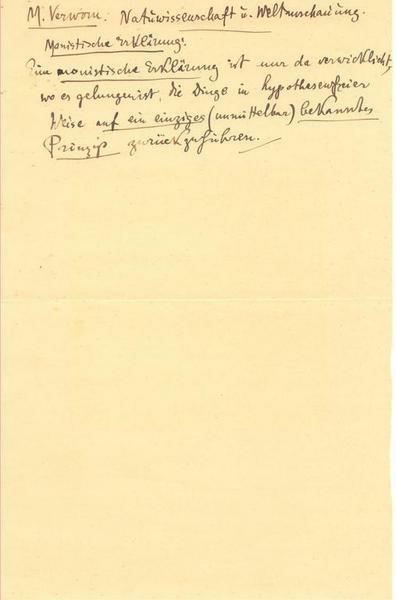 M. Verworn: Naturwissenschaft u. Weltanschauung.
Monistische Erklärung:
Eine monistische Erklärung ist nur da verwirklicht,
wo es gelungen ist, die Dinge in hypothesenfreier
Weise auf ein einziges (unmittelbar) bekanntes
Prinzip zurückzuführen.